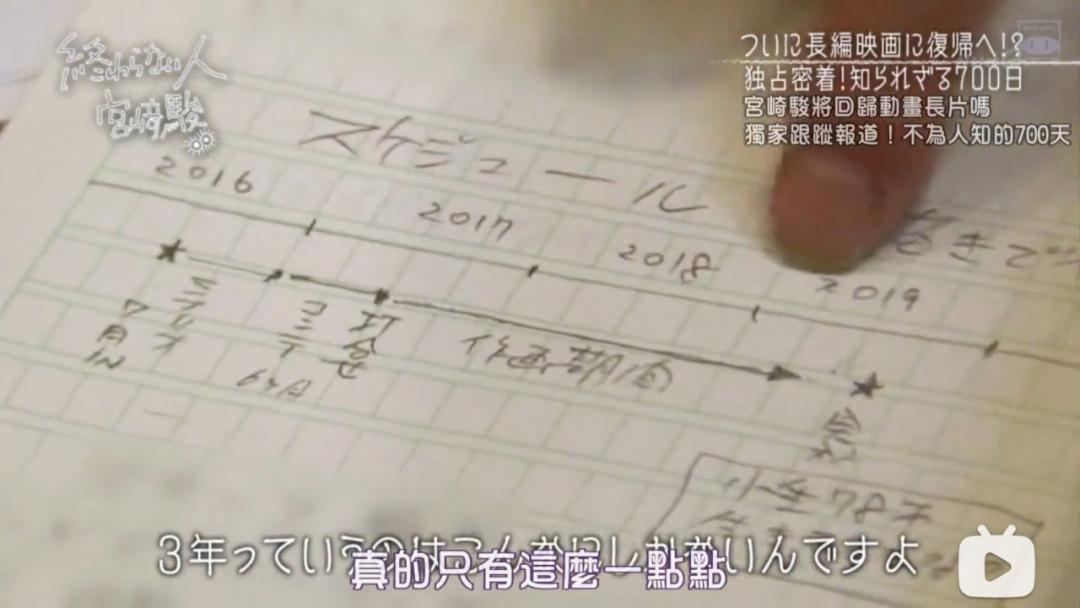 終わらない人
宮﨑駿
ついに長編映画に復帰へ!?
独占密着!知られざる700日
宮崎駿將回歸動畫長片嗎
獨家跟蹤報道!不為人知的700天
スケジュール
2016
2017
2018
2019
7月IN
シナリオ
コンテ
6ヶ月
打合せ
作画期間
小生78才
3年っていうのはこんなにしかないんですよ
真的只有這麼一點點